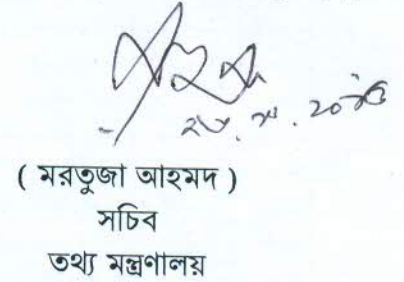 ( মরতুজা আহমদ )
সচিব
তথ্য মন্ত্রণালয়